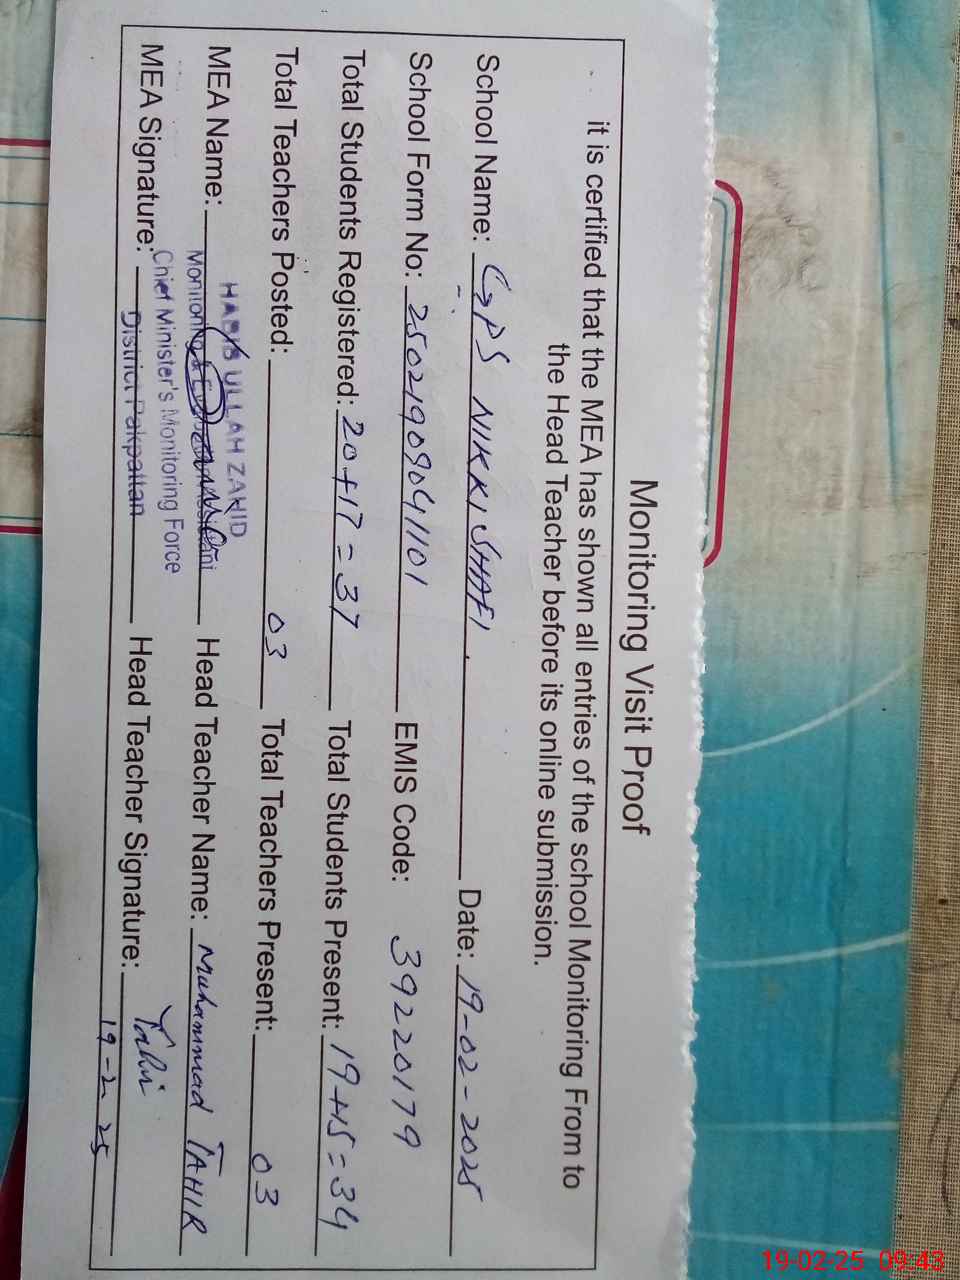 Monitoring Visit Proof
it is certified that the MEA has shown all entries of the school Monitoring From to
the Head Teacher before its online submission.
School Name: GPS NIKKI SHAFI. Date: 19-02-2025
School Form No: 25021909041101 EMIS Code: 39220179
Total Students Registered: 20+17=37 Total Students Present: 19+15=34
Total Teachers Posted: 03 Total Teachers Present: 03
HABIB ULLAH ZAHID
MEA Name: Monitoring & Head Teacher Name: Muhammad TAHIR
Chief Minister's Monitoring Force
MEA Signature: District Pakpattan Head Teacher Signature: Tahir
19-2-25
19-02-25 09:43